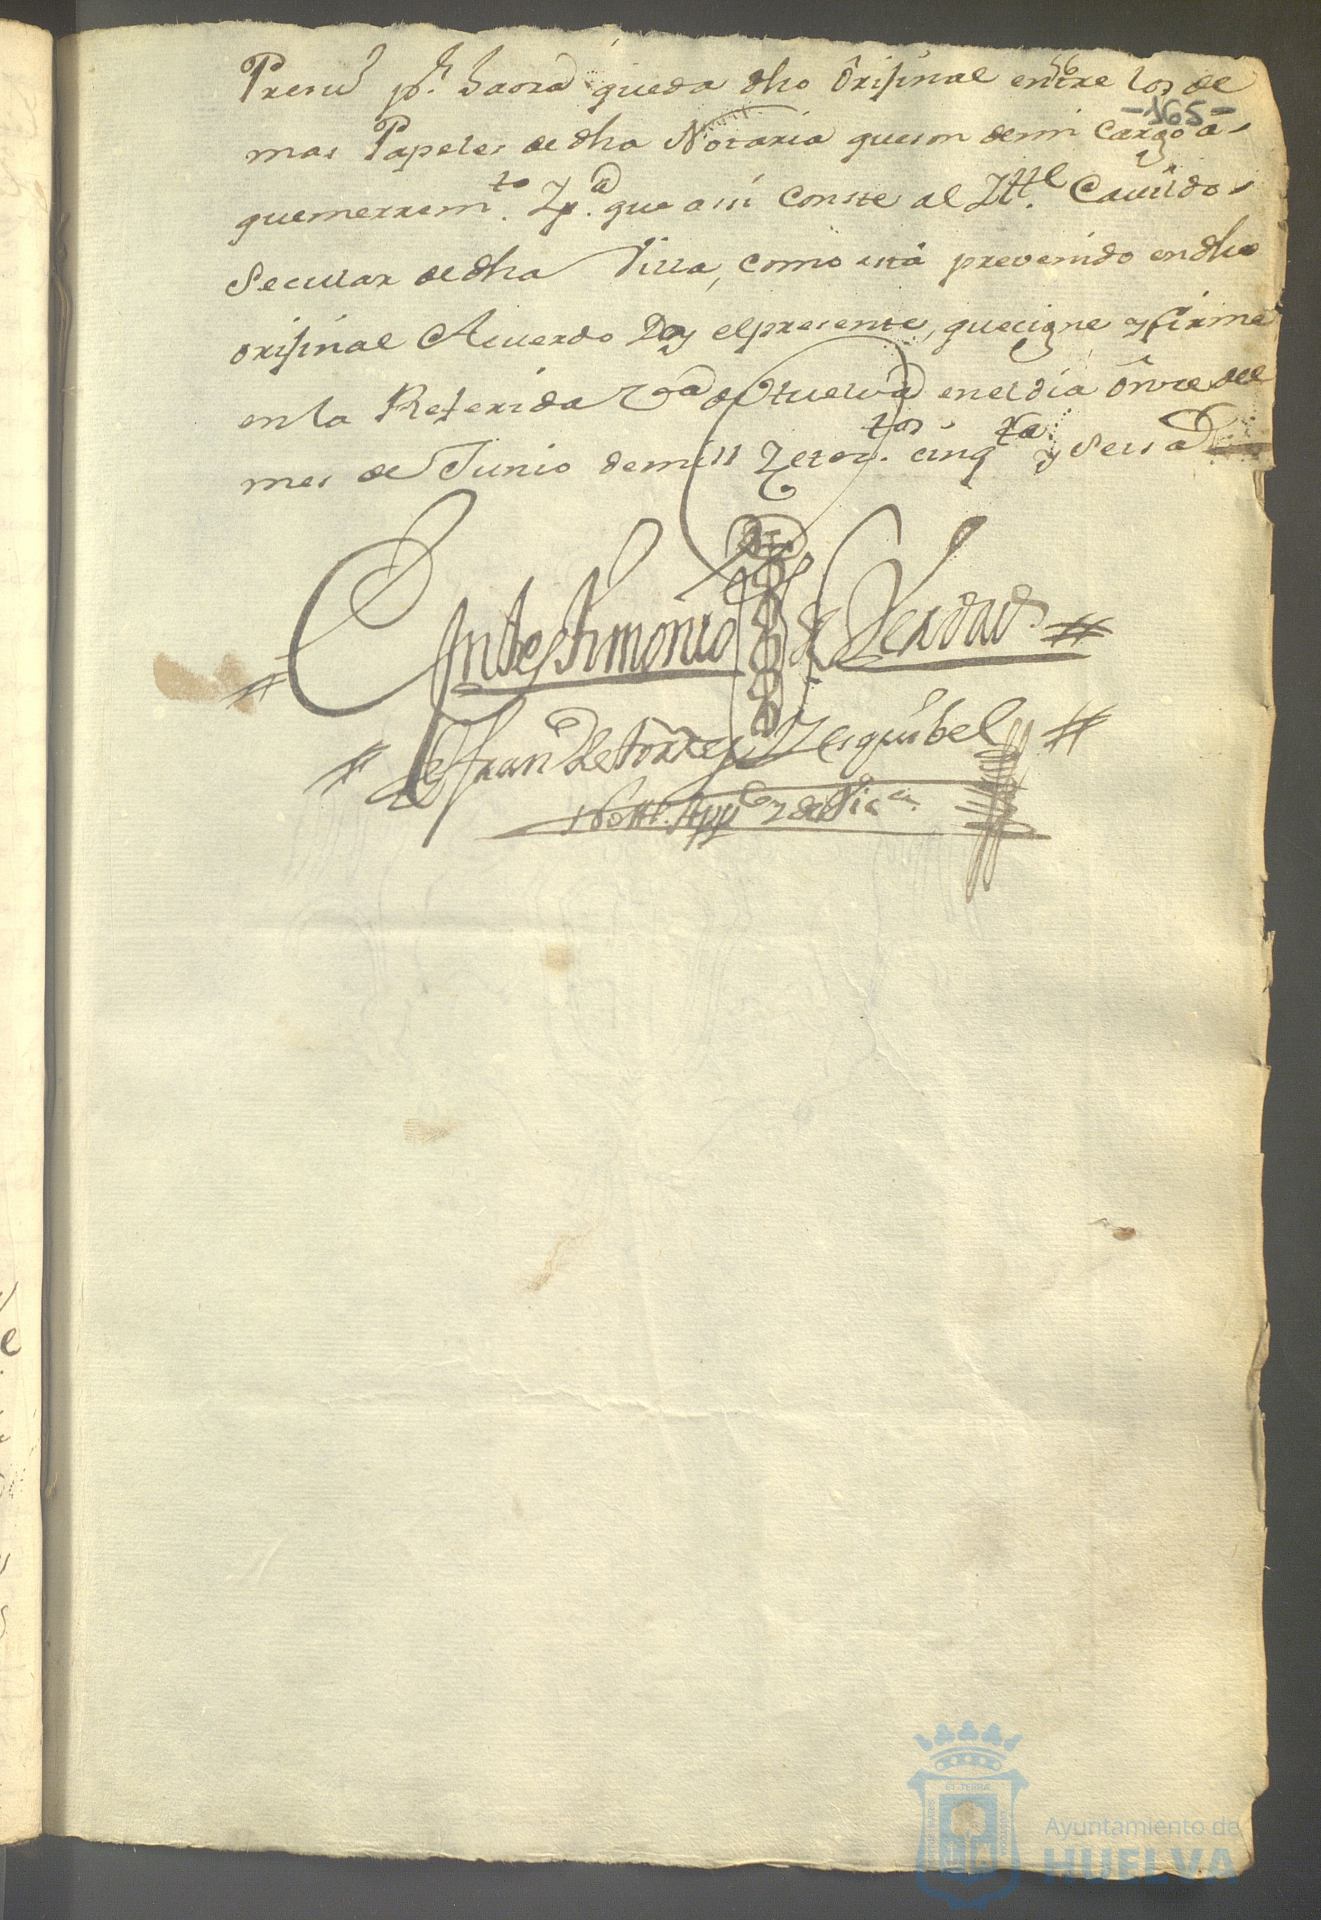 56
-165-
queda dho Orijinal entre los de
mas Papeles de dha Notaria que son de mi cargo a
que me rrem.to Y p.a que assi conste al Ill.e Cavildo
Secular de dha Villa, como está prevenido en dho
orijinal Acuerdo Doy el presente, que signe y firme
en la Referida v.a de Huelva en el dia onze del
mes de Junio de mill Setezos. cinq.ta y Seis a.s
En testimonio de Verdad
Fran.co de torres Y Esquibel
Nott. App.co y de Vic.a
ET TERRA
Ayuntamiento de
HUELVA